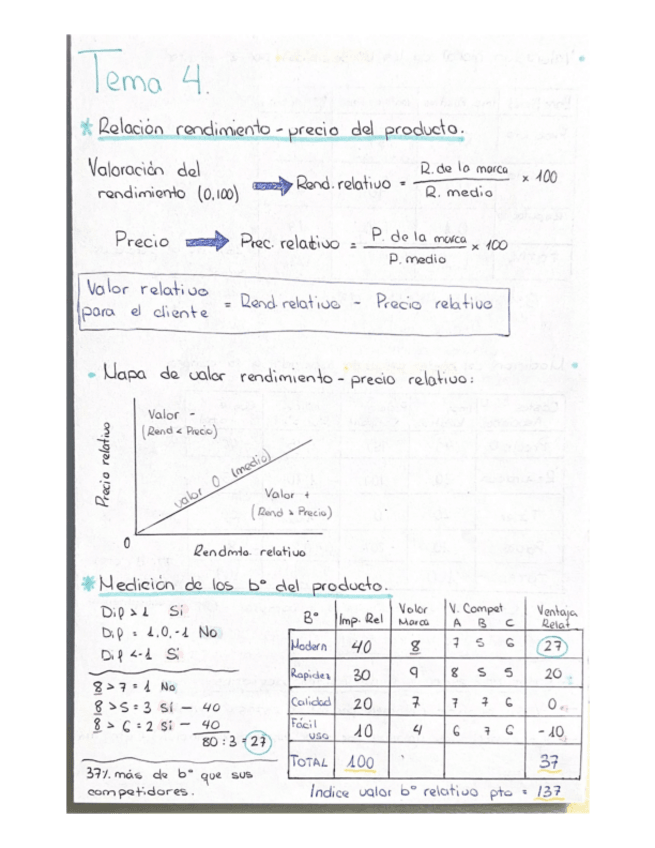 Tema 4.
* Relación rendimiento - precio del producto.
Valoración del rendimiento (0,100) → Rend. relativo = R. de la marca / R. medio x 100
Precio → Prec. relativo = P. de la marca / P. medio x 100
Valor relativo para el cliente = Rend. relativo - Precio relativo
• Mapa de valor rendimiento - precio relativo:
Precio relativo
Valor -
(Rend < Precio)
valor 0 (medio)
Valor +
(Rend > Precio)
0
Rendmto. relativo
* Medición de los bº del producto.
Dif > 1 Si
Dif = 1,0,-1 No
Dif <-1 Si
8 > 7 = 1 No
8 > 5 = 3 Sí - 40
8 > 6 = 2 Sí - 40
80 : 3 = 27
37% más de bº que sus
competidores.
Bº Imp. Rel Valor Marca V. Compet A B C Ventaja Relat
Modern 40 8 7 5 6 27
Rapidez 30 9 8 5 5 20
Calidad 20 7 7 7 6 0
Fácil uso 10 4 6 7 6 -10
TOTAL 100 37
Indice valor bº relativo pto = 137